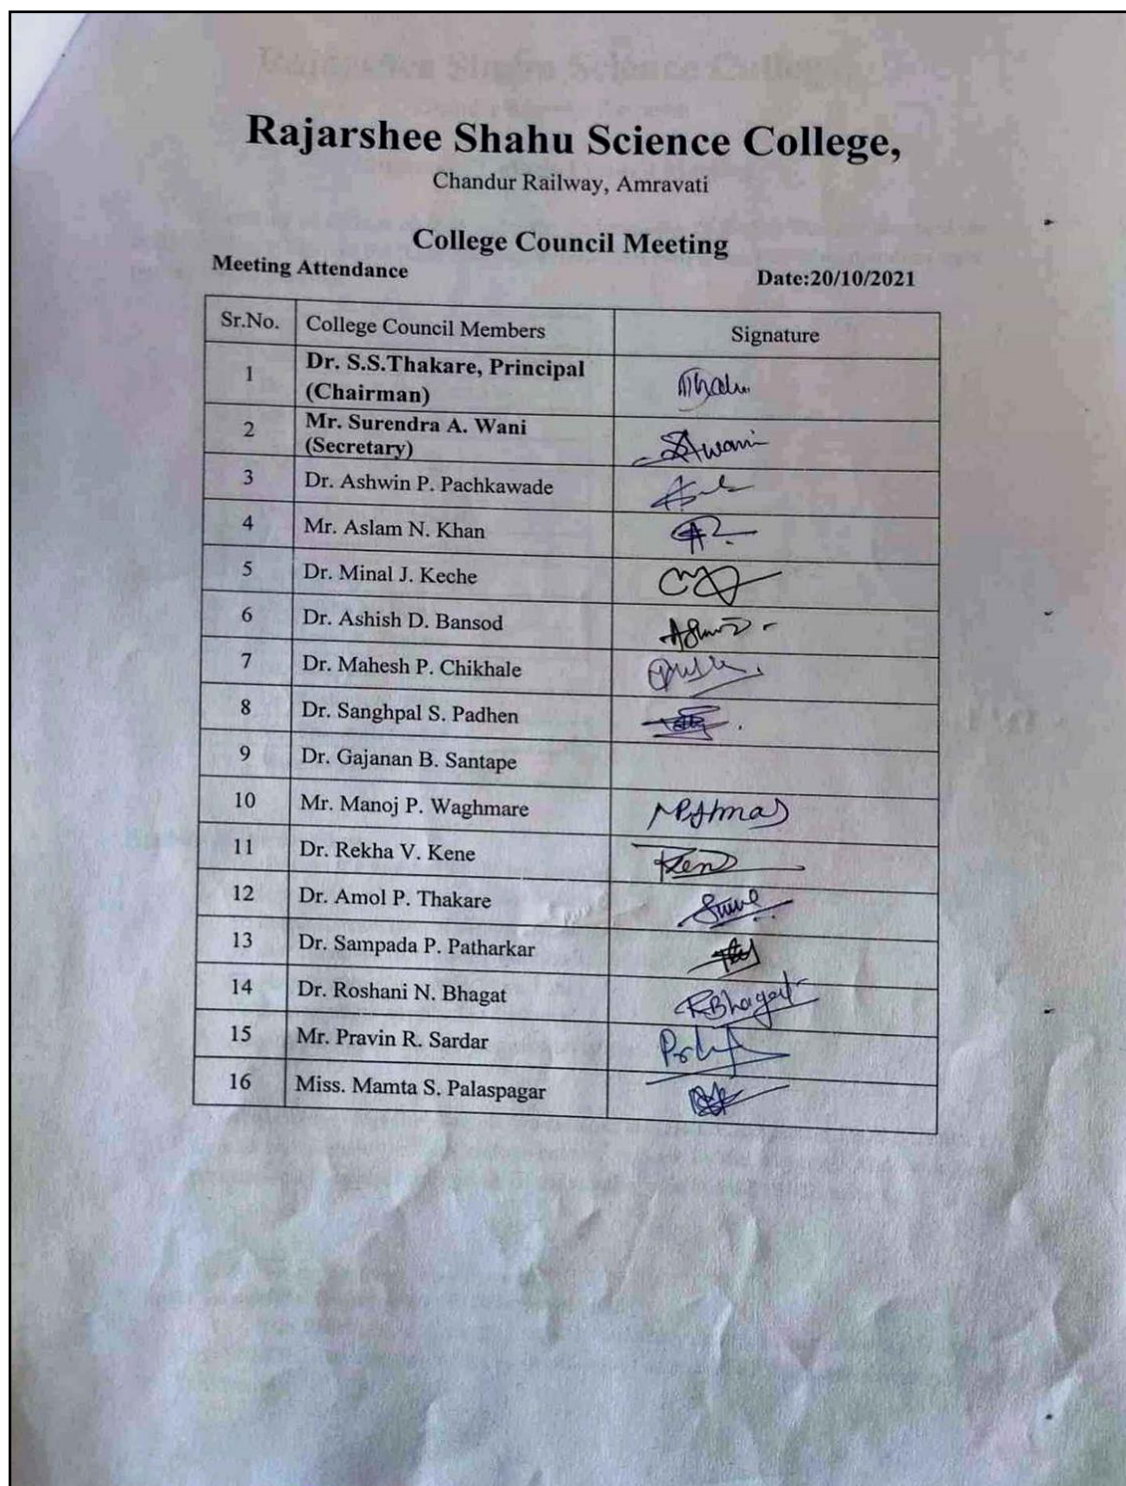 Rajarshee Shahu Science College,
Chandur Railway, Amravati
College Council Meeting
Meeting Attendance Date:20/10/2021
Sr.No. College Council Members Signature
1 Dr. S.S.Thakare, Principal
(Chairman)
2 Mr. Surendra A. Wani
(Secretary)
3 Dr. Ashwin P. Pachkawade
4 Mr. Aslam N. Khan
5 Dr. Minal J. Keche
6 Dr. Ashish D. Bansod
7 Dr. Mahesh P. Chikhale
8 Dr. Sanghpal S. Padhen
9 Dr. Gajanan B. Santape
10 Mr. Manoj P. Waghmare
11 Dr. Rekha V. Kene
12 Dr. Amol P. Thakare
13 Dr. Sampada P. Patharkar
14 Dr. Roshani N. Bhagat RBhagat
15 Mr. Pravin R. Sardar
16 Miss. Mamta S. Palaspagar